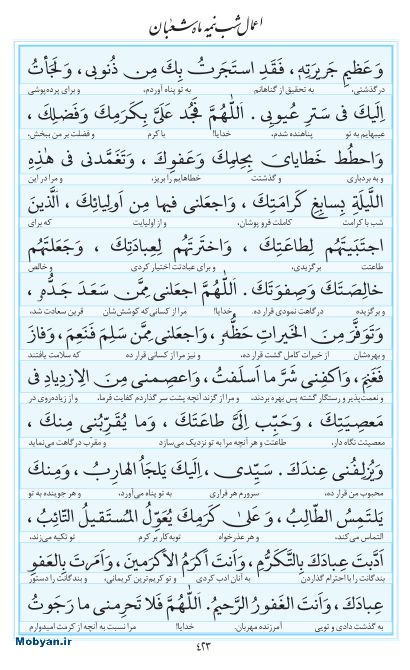 اعمال شب نیمه ماه شعبان
وَعَظیمِ جَریرَتِهِ، فَقَدِ اسْتَجَرْتُ بِكَ مِن ذُنُوبی، وَلَجَأْتُ
درگذشتی، به تحقیق از گناهانم به تو پناه آوردم، و برای پرده‌پوشی
اِلَیكَ فی سَترِ عُیوبی. اَللّٰهُمَّ فَجُد عَلَیَّ بِكَرَمِكَ وَفَضلِكَ،
عیبهایم به تو پناهنده شدم. خدایا! با کرم و فضلت بر من ببخش،
وَاحطُط خَطایایَ بِحِلمِكَ وَعَفوِكَ، وَتَغَمَّدنی فی هٰذِهِ
و به بردباری و گذشتت خطاهایم را بریز، و مرا در این
اللَّیلَةِ بِسابِغِ كَرامَتِكَ، وَاجعَلنی فیها مِن اَولِیائِكَ، الَّذینَ
شب با کرامت کاملت فرو پوشان، و از اولیایت که برای
اجتَبَیتَهُم لِطاعَتِكَ، وَاختَرتَهُم لِعِبادَتِكَ، وَجَعَلتَهُم
طاعتت برگزیدی، و برای عبادتت اختیار کردی و خالص
خالِصَتَكَ وَصِفوَتَكَ. اَللّٰهُمَّ اجعَلنی مِمَّن سَعَدَ جَدُّهُ،
و برگزیده درگاهت نمودی قرار ده. خدایا! مرا از کسانی که کوشش‌شان قرین سعادت شد،
وَتَوَفَّرَ مِنَ الخَیراتِ حَظُّهُ، وَاجعَلنی مِمَّن سَلِمَ فَنَعِمَ، وَفازَ
و بهره‌شان از خیرات کامل گشت قرار ده، و نیز مرا از کسانی قرار ده که سلامت یافتند
فَغَنِمَ، وَاكفِنی شَرَّ ما اَسلَفتُ، وَاعصِمنی مِنَ الاِزدِیادِ فی
و نعمت‌پذیر و رستگار گشته پس بهره بردند، و مرا از گزند آنچه پشت سر گذاردم کفایت فرما، و از زیاده‌روی در
مَعصِیَتِكَ، وَحَبِّب اِلَیَّ طاعَتَكَ، وَما یُقَرِّبُنی مِنكَ،
معصیتت نگاه دار، طاعتت و هر آنچه مرا به تو نزدیک می‌سازد و مقرب درگاهت می‌نماید
وَیُزلِفُنی عِندَكَ. سَیِّدی، اِلَیكَ یَلجَأُ الهارِبُ، وَمِنكَ
محبوب من قرار ده، سرورم هر فراری به تو پناه می‌آورد، و هر جوینده به تو
یَلتَمِسُ الطّالِبُ، وَعَلىٰ كَرَمِكَ یُعَوِّلُ المُستَقیلُ التّائِبُ،
التماس می‌کند، و هر عذرخواه توبه‌کار بر کرم تو تکیه می‌زند،
اَدَّبتَ عِبادَكَ بِالتَّكَرُّمِ، وَاَنتَ اَكرَمُ الاَكرَمینَ، وَاَمَرتَ بِالعَفوِ
بندگانت را با احترام گذاردن به آنان ادب کردی و تو کریم‌ترین کریمانی، و بندگانت را دستور
عِبادَكَ، وَاَنتَ الغَفورُ الرَّحیمُ. اَللّٰهُمَّ فَلا تَحرِمنی ما رَجَوتُ
به گذشت دادی و تویی آمرزنده مهربان. خدایا! مرا نسبت به آنچه از کرمت امیدوارم
۴۲۳
Mobyan.ir